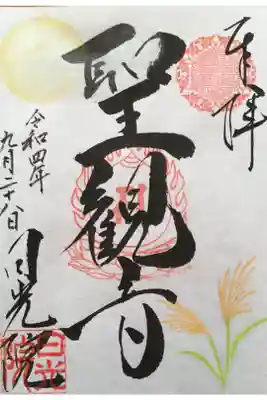 奉拝
聖観音
令和四年
九月二十八日
月光院